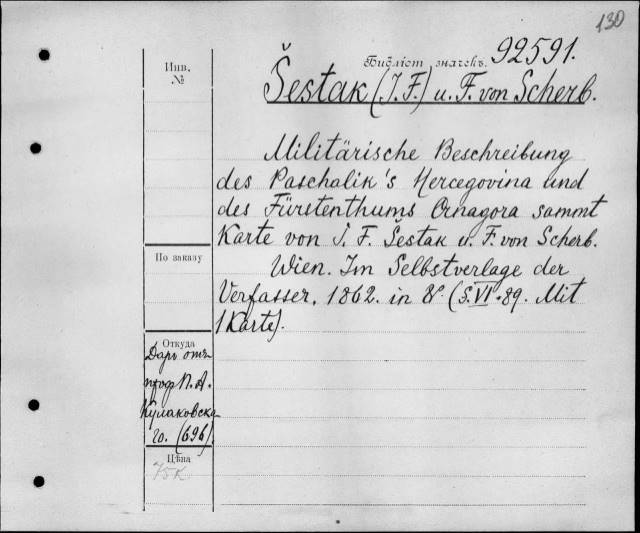 130
Библіот. значекъ. 92591.
Инв.
№
Šestak (J. F.) u. F. von Scherb.
Militärische Beschreibung
des Paschalik's Hercegovina und
des Fürstenthums Crnagora sammt
Karte von J. F. Šestak u. F. von Scherb.
Wien. Im Selbstverlage der
Verfasser, 1862. in 8°. (S. VI + 89. Mit
1 Karte).
По заказу
Откуда
Даръ отъ
проф. П. А.
Кулаковска-
го. (696).
Цѣна
75к